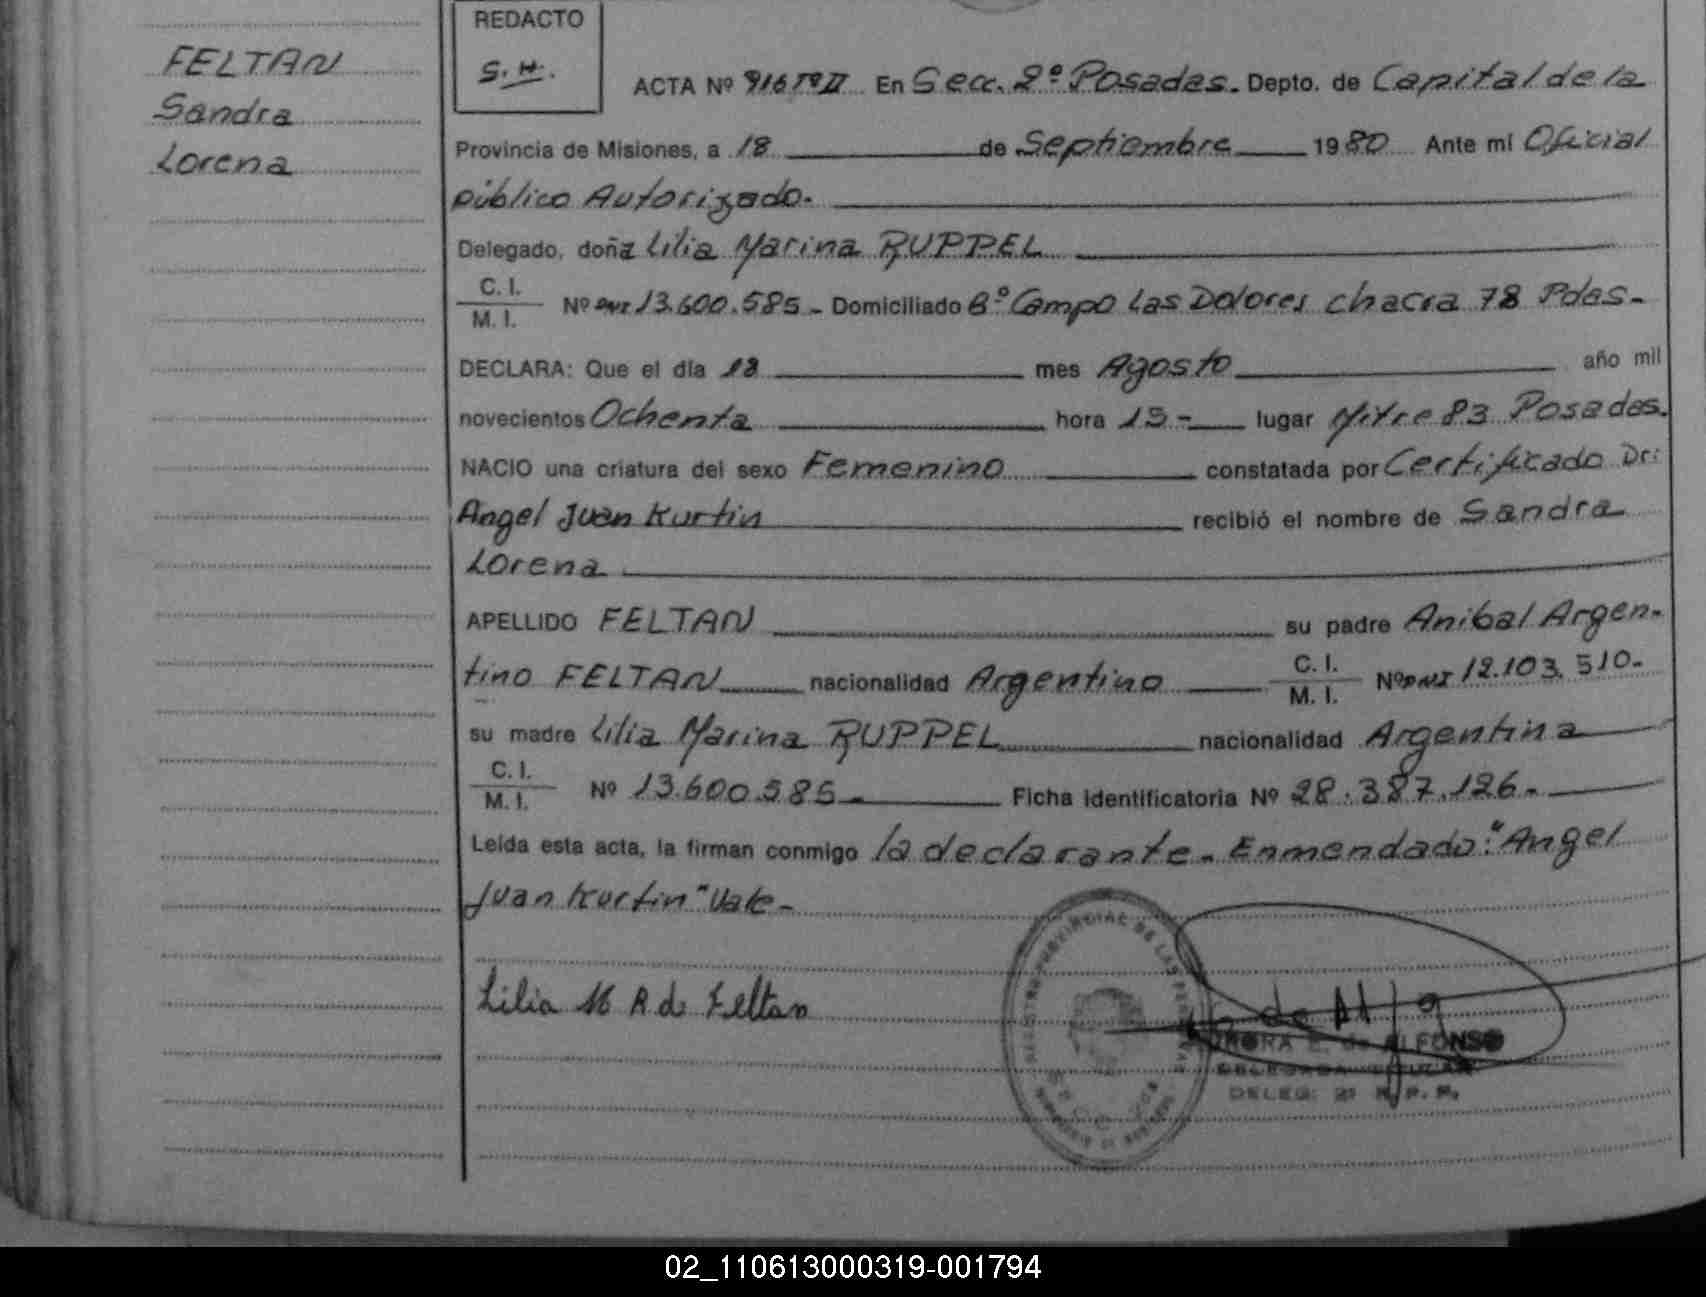 FELTAN
Sandra
Lorena
REDACTO
S.H.
ACTA Nº 916 Tº II En Secc. 2º Posadas. Depto. de Capital de la
Provincia de Misiones, a 18 de Septiembre 1980 Ante mi Oficial
público Autorizado.
Delegado, doña Lilia Marina RUPPEL
C. I.
M. I. Nº DNI 13.600.585 - Domiciliado Bº Campo Las Dolores chacra 78 Pdas-
DECLARA: Que el día 18 mes Agosto año mil
novecientos Ochenta hora 15- lugar Mitre 83 Posadas.
NACIO una criatura del sexo Femenino constatada por Certificado Dr:
Angel Juan Kurtin recibió el nombre de Sandra
Lorena
APELLIDO FELTAN su padre Anibal Argen-
tino FELTAN nacionalidad Argentino C. I. M. I. Nº DNI 12.103.510-
su madre Lilia Marina RUPPEL nacionalidad Argentina
C. I.
M. I. Nº 13.600.585- Ficha identificatoria Nº 28.387.126-
Leída esta acta, la firman conmigo la declarante - Enmendado: "Angel
Juan Kurtin" Vale-
Lilia M R de Feltan
E. de ALFONSO
DELEGADA TITULAR
DELEG. 2ª R. P. P.
02_110613000319-001794